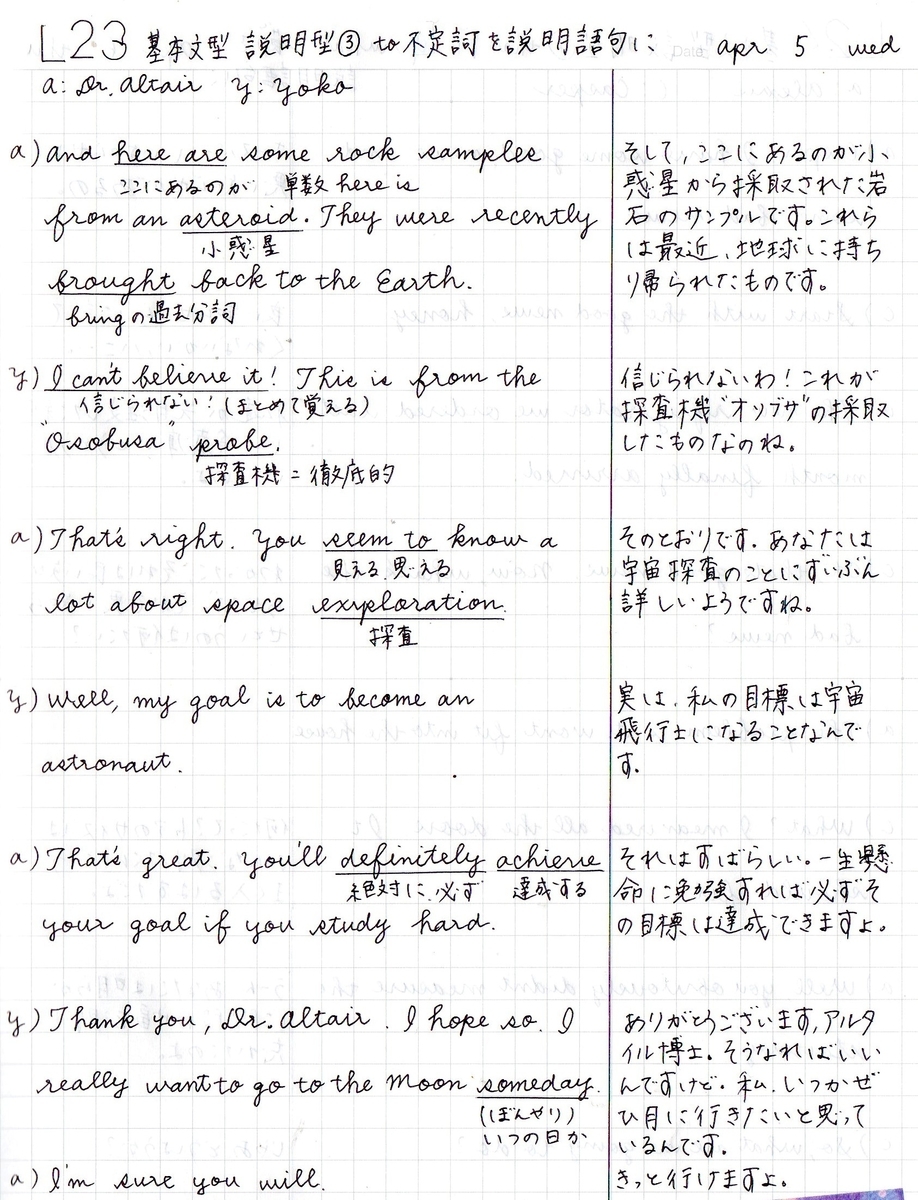 L23 基本文型 説明型③ to不定詞を説明語句に apr 5 wed
a: Dr. Altair y: yoko
a) and here are some rock samples
ここにあるのが 単数 here is
from an asteroid. They were recently
小惑星
brought back to the Earth.
bringの過去分詞
そして、ここにあるのが小
惑星から採取された岩
石のサンプルです。これら
は最近、地球に持ち
り帰られたものです。
y) I can't believe it! This is from the
信じられない!(まとめて覚える)
"Osobusa" probe.
探査機 = 徹底的
信じられないわ!これが
探査機"オソブサ"の採取
したものなのね。
a) That's right. You seem to know a
見える、思える
lot about space exploration.
探査
そのとおりです。あなたは
宇宙探査のことにずいぶん
詳しいようですね。
y) Well, my goal is to become an
astronaut.
実は、私の目標は宇宙
飛行士になることなんで
す。
a) That's great. You'll definitely achieve
絶対に、必ず 達成する
your goal if you study hard.
それはすばらしい。一生懸
命に勉強すれば必ずそ
の目標は達成できますよ。
y) Thank you, Dr. Altair. I hope so. I
really want to go to the Moon someday.
(ぼんやり)
いつの日か
ありがとうございます,アルタ
イル博士。そうなればいい
んですけど。私、いつかぜ
ひ月に行きたいと思って
いるんです。
a) I'm sure you will.
きっと行けますよ。